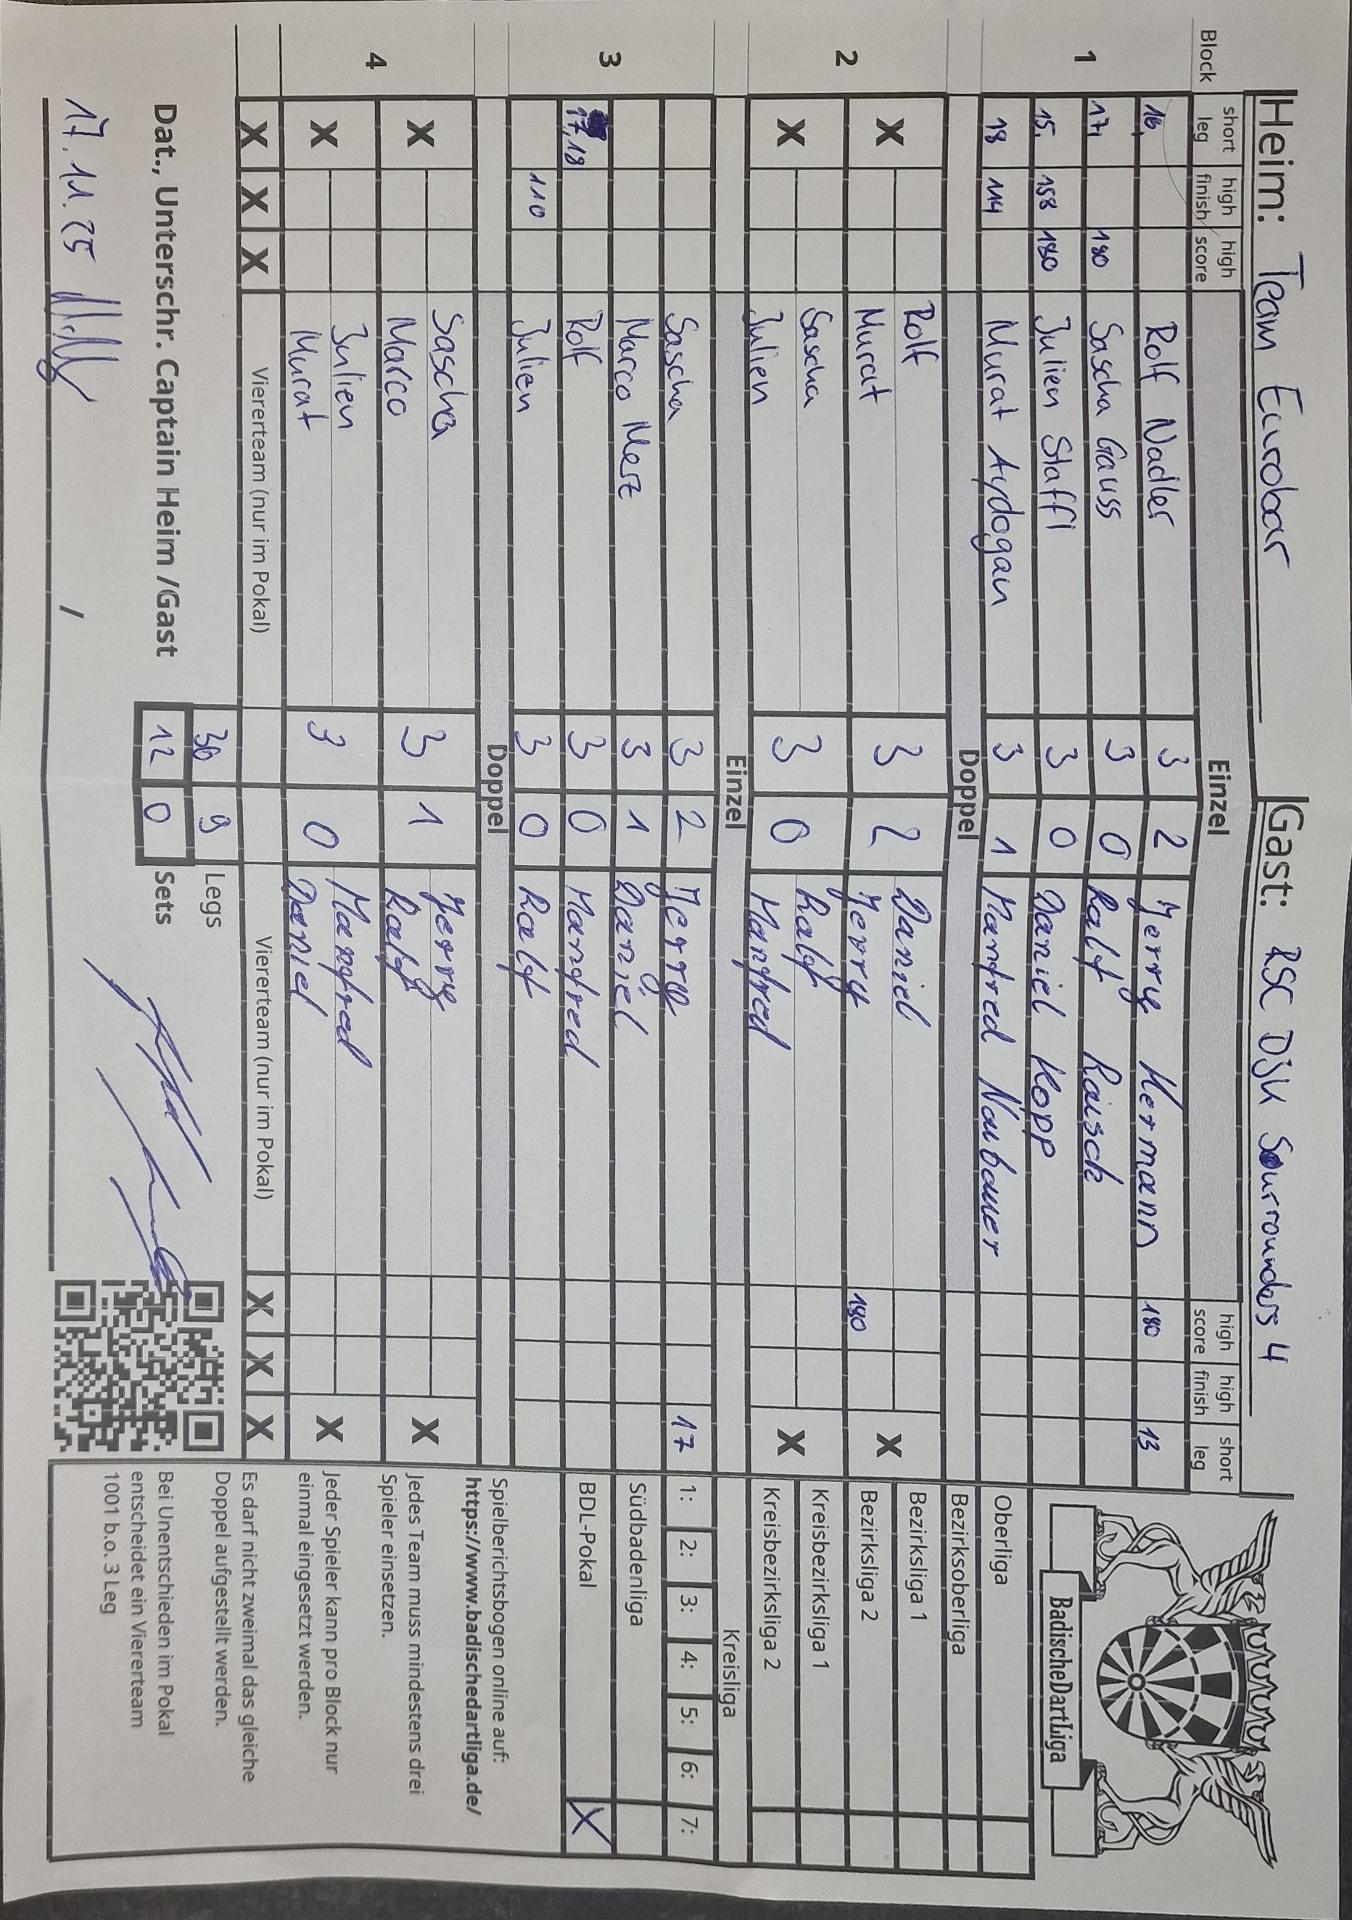 Heim: Team Eurobar Gast: RSC DJK Sourrounders 4
Block short leg high finish high score Einzel high score high finish short leg
1
16, Rolf Nadler 3 2 Jerry Hermann 180 13
17, 180 Sascha Gauss 3 0 Ralf Raisch
15, 158 180 Julien Staffl 3 0 Daniel Kopp
18 114 Murat Aydogan 3 1 Manfred Naubauer
Doppel
2
X Rolf 3 2 Daniel X
Murat Jerry 180
X Sascha 3 0 Ralf X
Julien Manfred
Einzel
3
Sascha 3 2 Jerry 17
Marco Merz 3 1 Daniel
17,18 Rolf 3 0 Manfred
110 Julien 3 0 Ralf
Doppel
4
X Sascha 3 1 Jerry X
Marco Ralf
X Julien 3 0 Manfred X
Murat Daniel
X X X Viererteam (nur im Pokal) Viererteam (nur im Pokal) X X X
36 9 Legs
Dat., Unterschr. Captain Heim /Gast 12 0 Sets
17.11.25 /
BadischeDartLiga
Oberliga
Bezirksoberliga
Bezirksliga 1
Bezirksliga 2
Kreisbezirksliga 1
Kreisbezirksliga 2
Kreisliga
1: 2: 3: 4: 5: 6: 7:
Südbadenliga
BDL-Pokal X
Spielberichtsbogen online auf:
https://www.badischedartliga.de/
Jedes Team muss mindestens drei
Spieler einsetzen.
Jeder Spieler kann pro Block nur
einmal eingesetzt werden.
Es darf nicht zweimal das gleiche
Doppel aufgestellt werden.
Bei Unentschieden im Pokal
entscheidet ein Viererteam
1001 b.o. 3 Leg